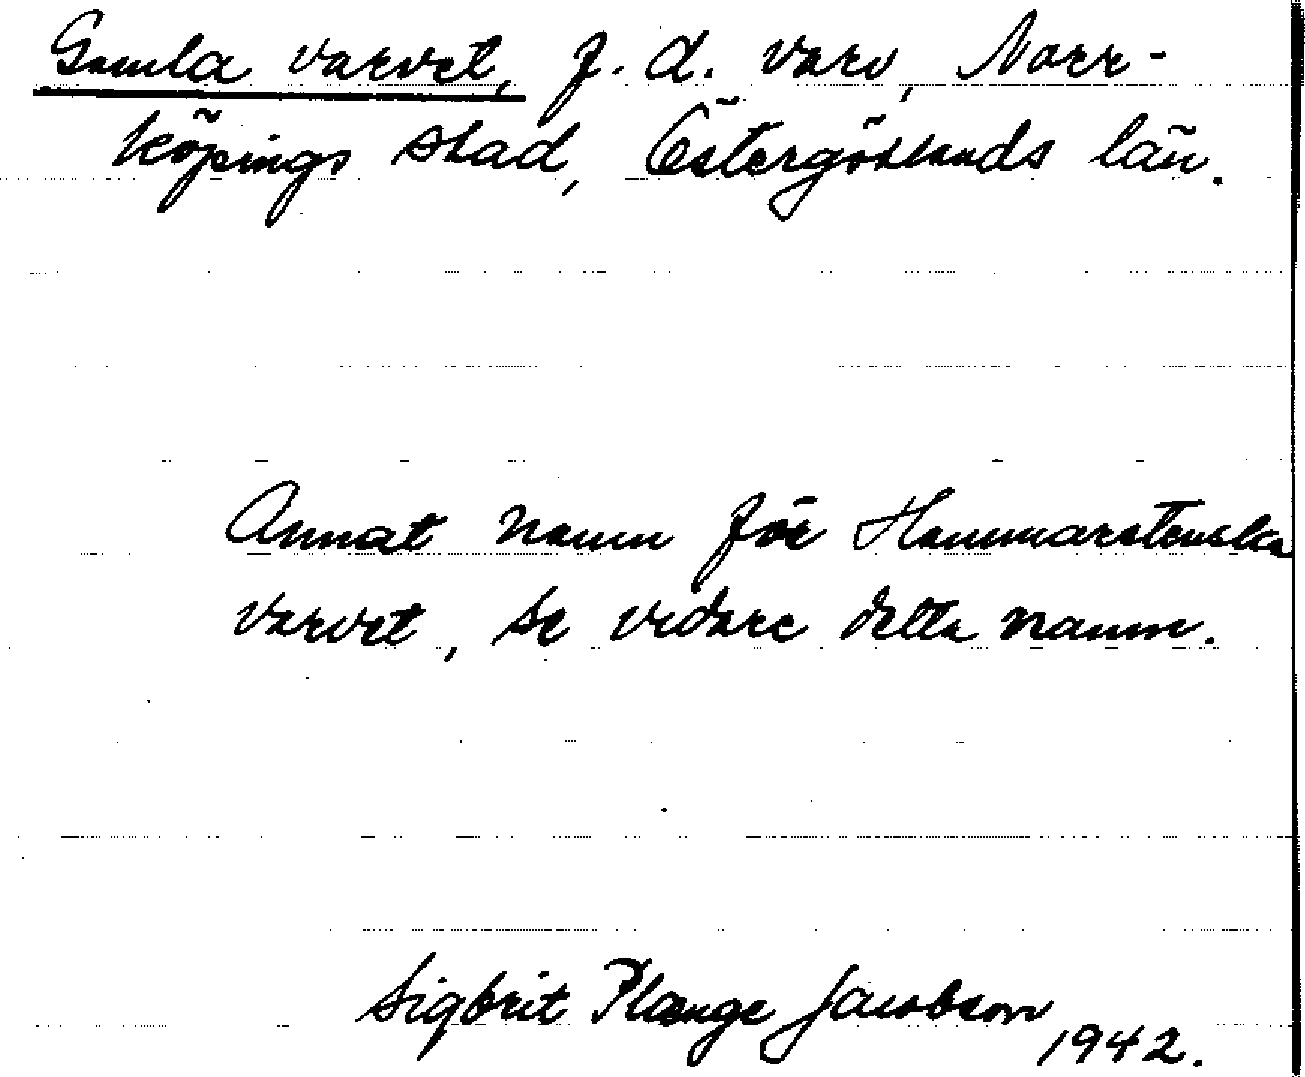 Gamla varvet, f.d. varv, Norr-
köpings stad, Östergötlands län.
Annat namn för Hammarstenska
varvet, se vidare detta namn.
Sigbrit Plænge Jacobson
1942.